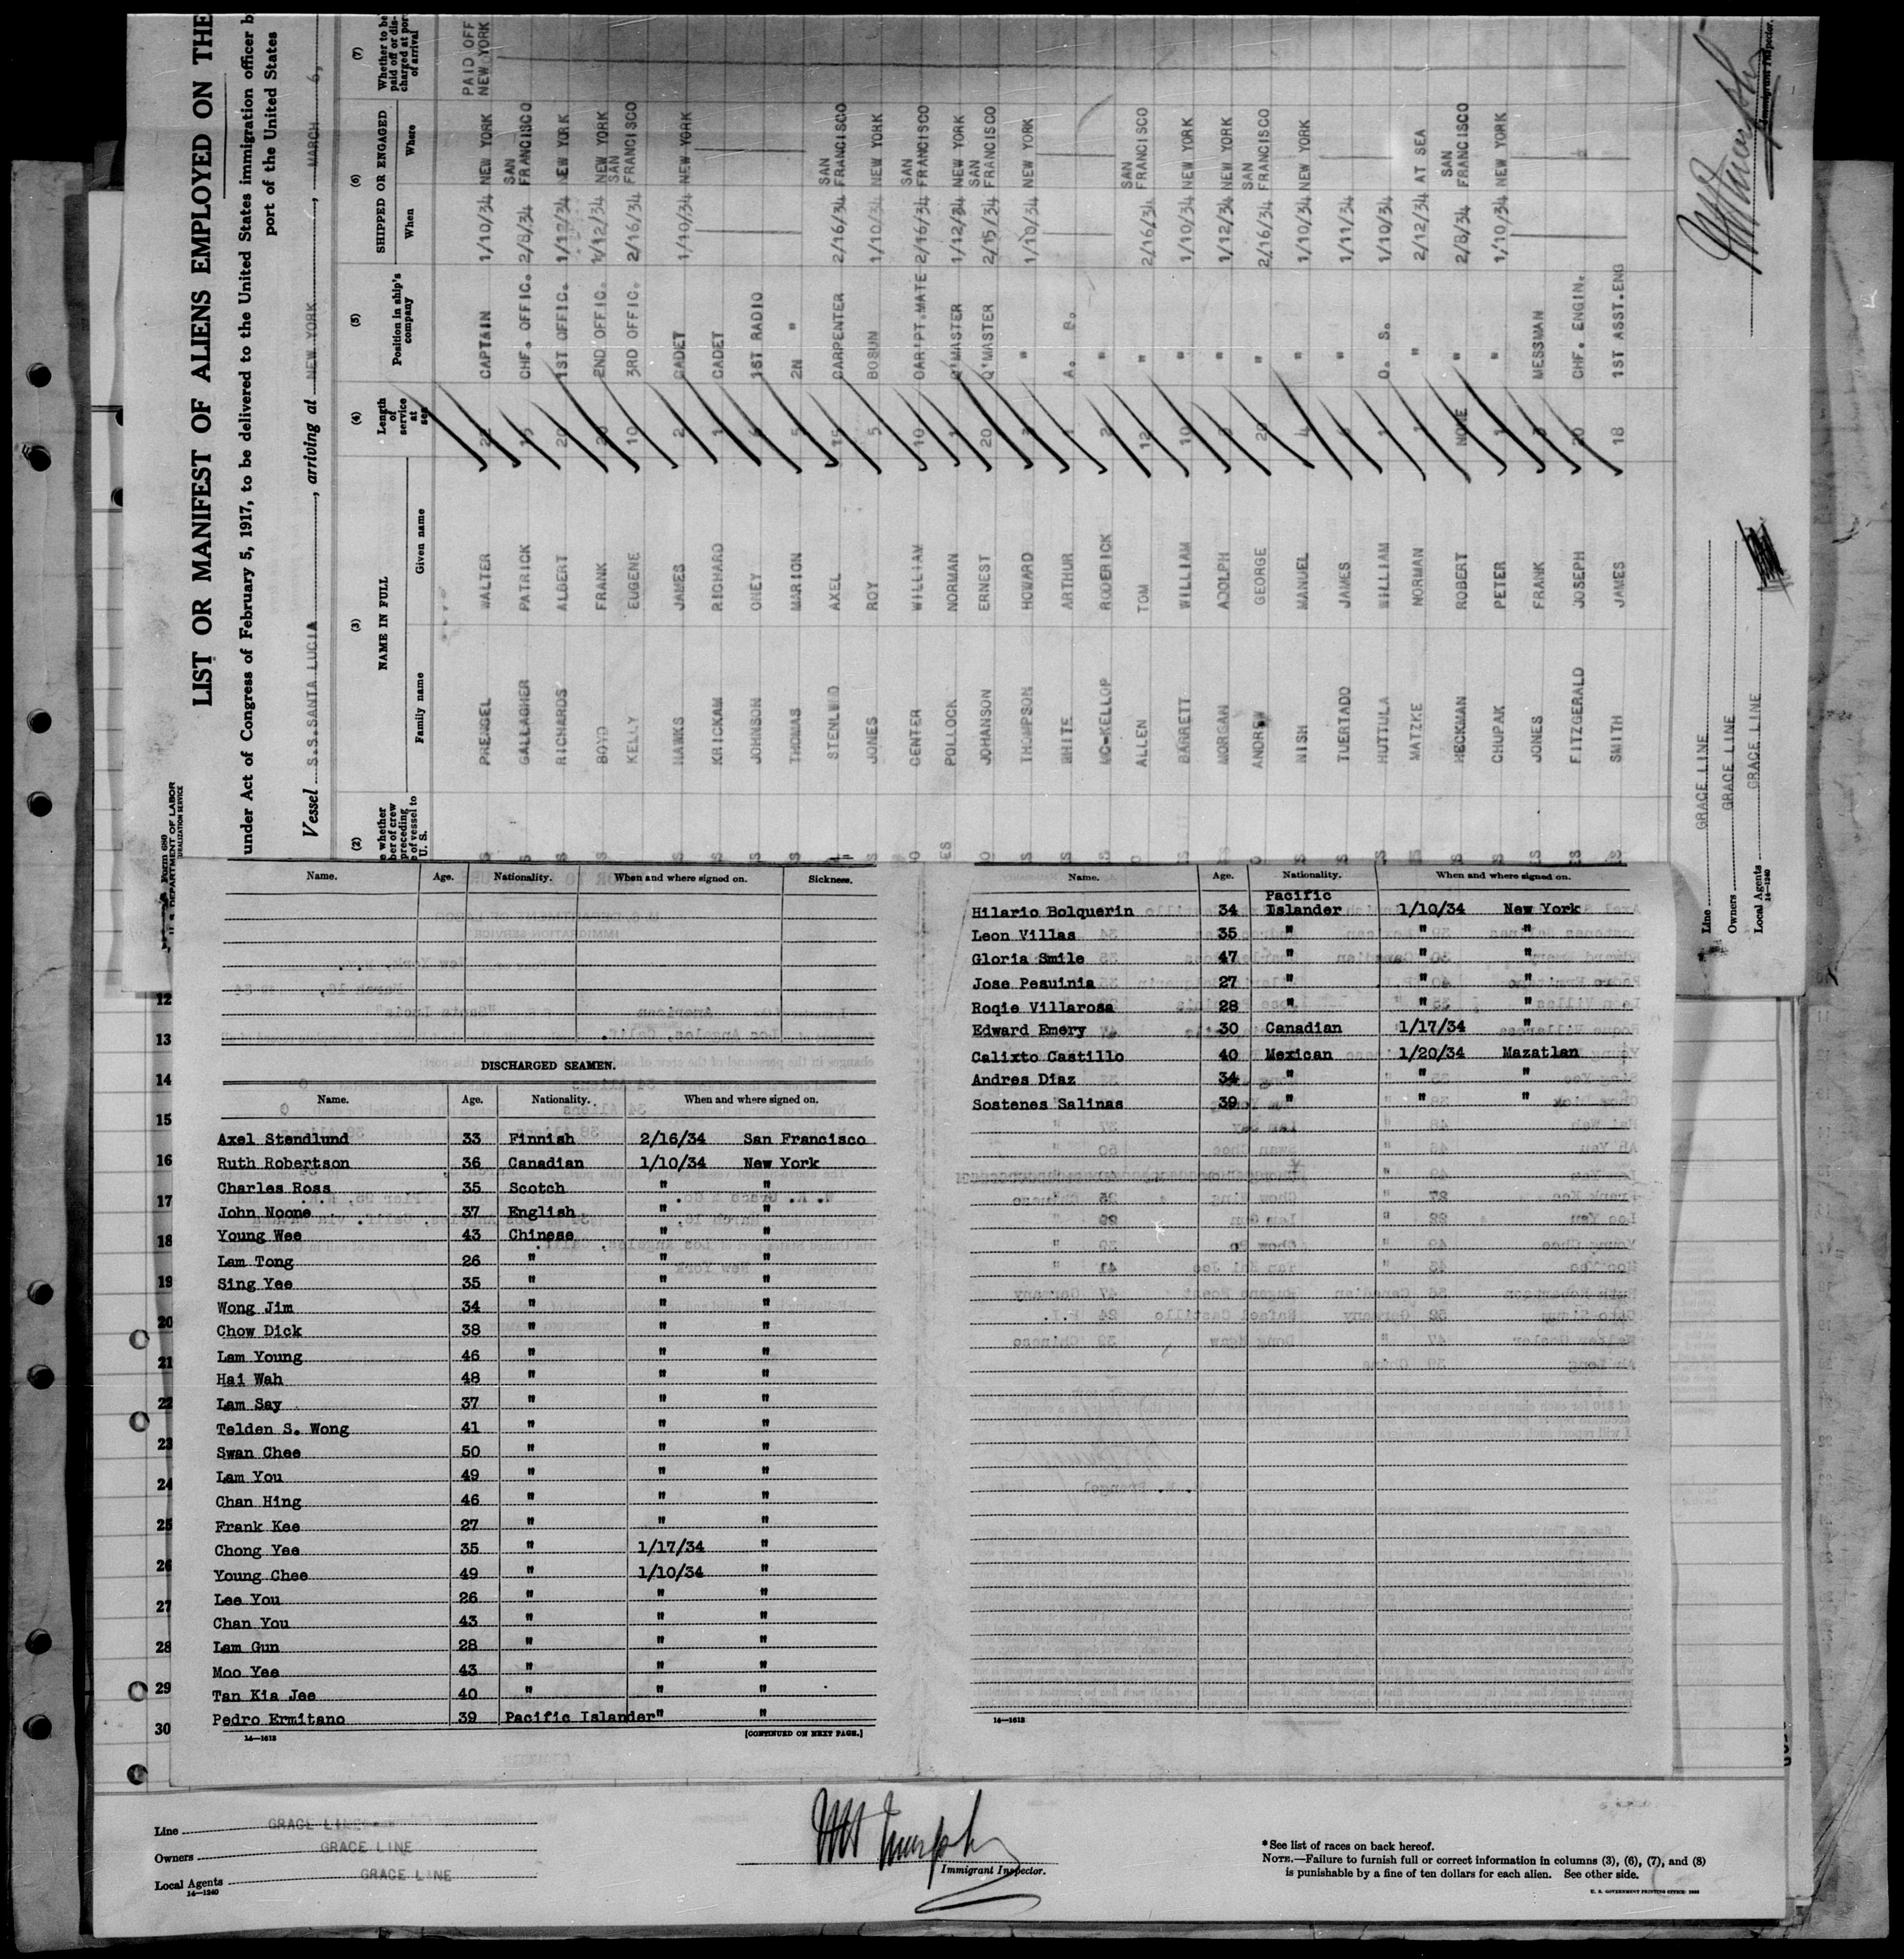 LIST OR MANIFEST OF ALIENS EMPLOYED ON THE
under Act of Congress of February 5, 1917, to be delivered to the United States immigration officer b
port of the United States
Vessel S.S.SANTA LUCIA, arriving at NEW YORK, MARCH 6,
Form 680
U. S. DEPARTMENT OF LABOR
(2) (3) (4) (5) (6) (7)
NAME IN FULL
Family name Given name
Length of service at sea
Position in ship's company
SHIPPED OR ENGAGED
When Where
Whether to be paid off or discharged at port of arrival
PRENGEL WALTER 22 CAPTAIN 1/10/34 NEW YORK PAID OFF NEW YORK
GALLAGHER PATRICK 15 CHF. OFFIC. 2/8/34 SAN FRANCISCO
RICHARDS ALBERT 20 1ST OFFIC. 1/12/34 NEW YORK
BOYD FRANK 20 2ND OFFIC. 1/12/34 NEW YORK
KELLY EUGENE 10 3RD OFFIC. 2/16/34 SAN FRANCISCO
HAWKS JAMES 2 CADET 1/10/34 NEW YORK
KRICKAM RICHARD 1 CADET
JOHNSON ONEY 6 1ST RADIO
THOMAS MARION 5 2N "
STENLWND AXEL 15 CARPENTER 2/16/34 SAN FRANCISCO
JONES ROY 5 BOSUN 1/10/34 NEW YORK
CENTER WILLIAM 10 CARPT.MATE 2/16/34 SAN FRANCISCO
POLLOCK NORMAN 1 Q'MASTER 1/12/34 NEW YORK
JOHANSON ERNEST 20 Q'MASTER 2/15/34 SAN FRANCISCO
THOMPSON HOWARD " 1/10/34 NEW YORK
WHITE ARTHUR 1 A. B.
MC-KELLOP RODERICK 2 "
ALLEN TOM 12 " 2/16/34 SAN FRANCISCO
BARRETT WILLIAM 10 " 1/10/34 NEW YORK
MORGAN ADOLPH " 1/12/34 NEW YORK
ANDREW GEORGE 20 " 2/16/34 SAN FRANCISCO
NISH MANUEL 4 " 1/10/34 NEW YORK
TUERTADO JAMES 6 " 1/11/34
HUTTULA WILLIAM 1 O. S. 1/10/34
MATZKE NORMAN 1 " 2/12/34 AT SEA
HECKMAN ROBERT NONE " 2/8/34 SAN FRANCISCO
CHUPAK PETER 1 " 1/10/34 NEW YORK
JONES FRANK MESSMAN
FITZGERALD JOSEPH 20 CHF. ENGIN.
SMITH JAMES 18 1ST ASST.ENG
Line GRACE LINE
Owners GRACE LINE
Local Agents GRACE LINE
14—1240
Immigrant Inspector.
Name. Age. Nationality. When and where signed on. Sickness.
DISCHARGED SEAMEN.
Name. Age. Nationality. When and where signed on.
Axel Stendlund 33 Finnish 2/16/34 San Francisco
Ruth Robertson 36 Canadian 1/10/34 New York
Charles Ross 35 Scotch " "
John Noone 37 English " "
Young Wee 43 Chinese " "
Lam Tong 26 " " "
Sing Yee 35 " " "
Wong Jim 34 " " "
Chow Dick 38 " " "
Lam Young 46 " " "
Hai Wah 48 " " "
Lam Say 37 " " "
Telden S. Wong 41 " " "
Swan Chee 50 " " "
Lam You 49 " " "
Chan Hing 46 " " "
Frank Kee 27 " " "
Chong Yee 35 " 1/17/34 "
Young Chee 49 " 1/10/34 "
Lee You 26 " " "
Chan You 43 " " "
Lam Gun 28 " " "
Moo Yee 43 " " "
Tan Kia Jee 40 " " "
Pedro Ermitano 39 Pacific Islander " "
14—1613 [CONTINUED ON NEXT PAGE.]
Name. Age. Nationality. When and where signed on.
Hilario Bolquerin 34 Pacific Islander 1/10/34 New York
Leon Villas 35 " " "
Gloria Smile 47 " " "
Jose Pesuinia 27 " " "
Roqie Villarosa 28 " " "
Edward Emery 30 Canadian 1/17/34 "
Calixto Castillo 40 Mexican 1/20/34 Mazatlan
Andres Diaz 34 " " "
Sostenes Salinas 39 " " "
14—1613
12
13
14
15
16
17
18
19
20
21
22
23
24
25
26
27
28
29
30
Line GRACE LINE
Owners GRACE LINE
Local Agents GRACE LINE
14—1240
Immigrant Inspector.
*See list of races on back hereof.
NOTE.—Failure to furnish full or correct information in columns (3), (6), (7), and (8)
is punishable by a fine of ten dollars for each alien. See other side.
U. S. GOVERNMENT PRINTING OFFICE: 1933